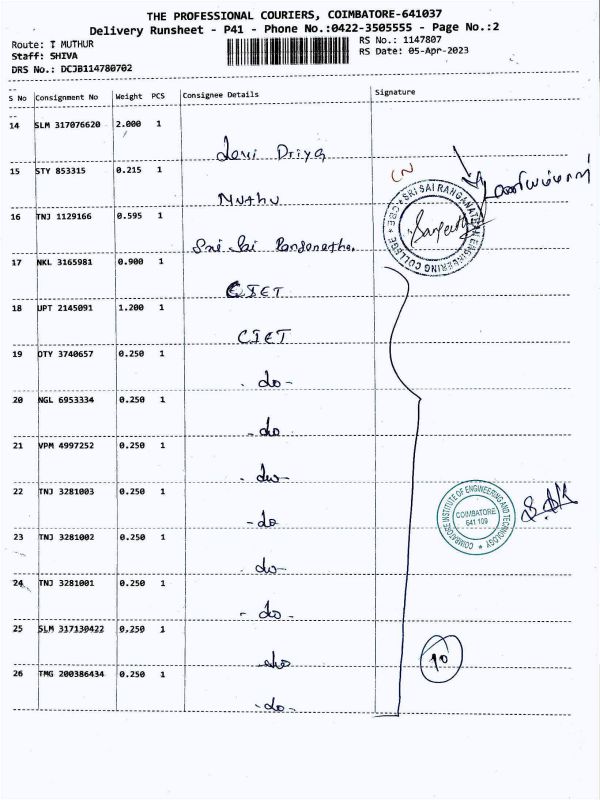 THE PROFESSIONAL COURIERS, COIMBATORE-641037
Delivery Runsheet - P41 - Phone No.:0422-3505555 - Page No.:2
Route: T MUTHUR
RS No.: 1147807
Staff: SHIVA
RS Date: 05-Apr-2023
DRS No.: DCJB114780702
S No Consignment No Weight PCS Consignee Details Signature
14 SLM 317076620 2.000 1
Devi Driya
15 STY 853315 0.215 1
CN
Muthu
16 TNJ 1129166 0.595 1
Sri Sai Ranganatha.
SRI SAI RANGANATHAN ENGINEERING COLLEGE * CBE *
17 NKL 3165981 0.900 1
CIET
18 UPT 2145091 1.200 1
CIET
19 OTY 3740657 0.250 1
- do -
20 NGL 6953334 0.250 1
- do
21 VPM 4997252 0.250 1
- do -
22 TNJ 3281003 0.250 1
- do
COIMBATORE INSTITUTE OF ENGINEERING AND TECHNOLOGY *
COIMBATORE
641 109
23 TNJ 3281002 0.250 1
- do -
24 TNJ 3281001 0.250 1
- do -
25 SLM 317130422 0.250 1
- do
10
26 TMG 200386434 0.250 1
- do -